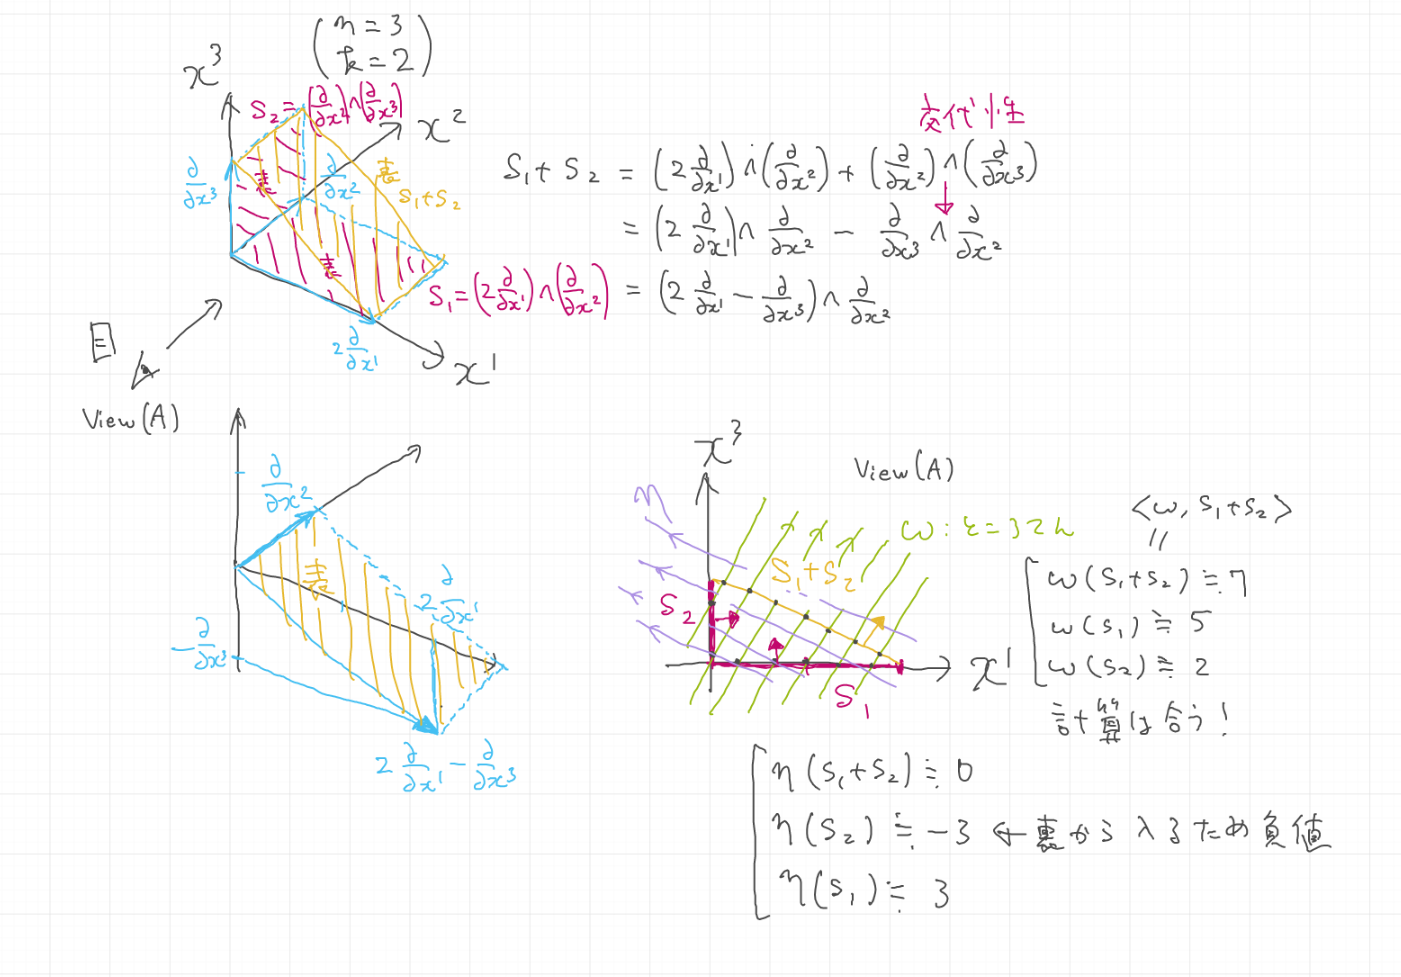 (n = 3
k = 2)
x³
S₂ = (∂/∂x²)∧(∂/∂x³)
x²
∂/∂x³
∂/∂x²
表
表
S₁+S₂
表
S₁=(2∂/∂x¹)∧(∂/∂x²)
2∂/∂x¹
x¹
目
View(A)
交代性
S₁+S₂ = (2∂/∂x¹)∧(∂/∂x²) + (∂/∂x²)∧(∂/∂x³)
= (2∂/∂x¹)∧∂/∂x² - ∂/∂x³∧∂/∂x²
= (2∂/∂x¹-∂/∂x³)∧∂/∂x²
∂/∂x²
表
2∂/∂x¹
-∂/∂x³
2∂/∂x¹-∂/∂x³
x³
View(A)
η
ω:
S₁+S₂
S₂
S₁
x¹
<ω, S₁+S₂>
॥
ω(S₁+S₂)≒7
ω(S₁)≒5
ω(S₂)≒2
計算は合う!
η(S₁+S₂)≒0
η(S₂)≒-3 ← 裏から入るため負値
η(S₁)≒3